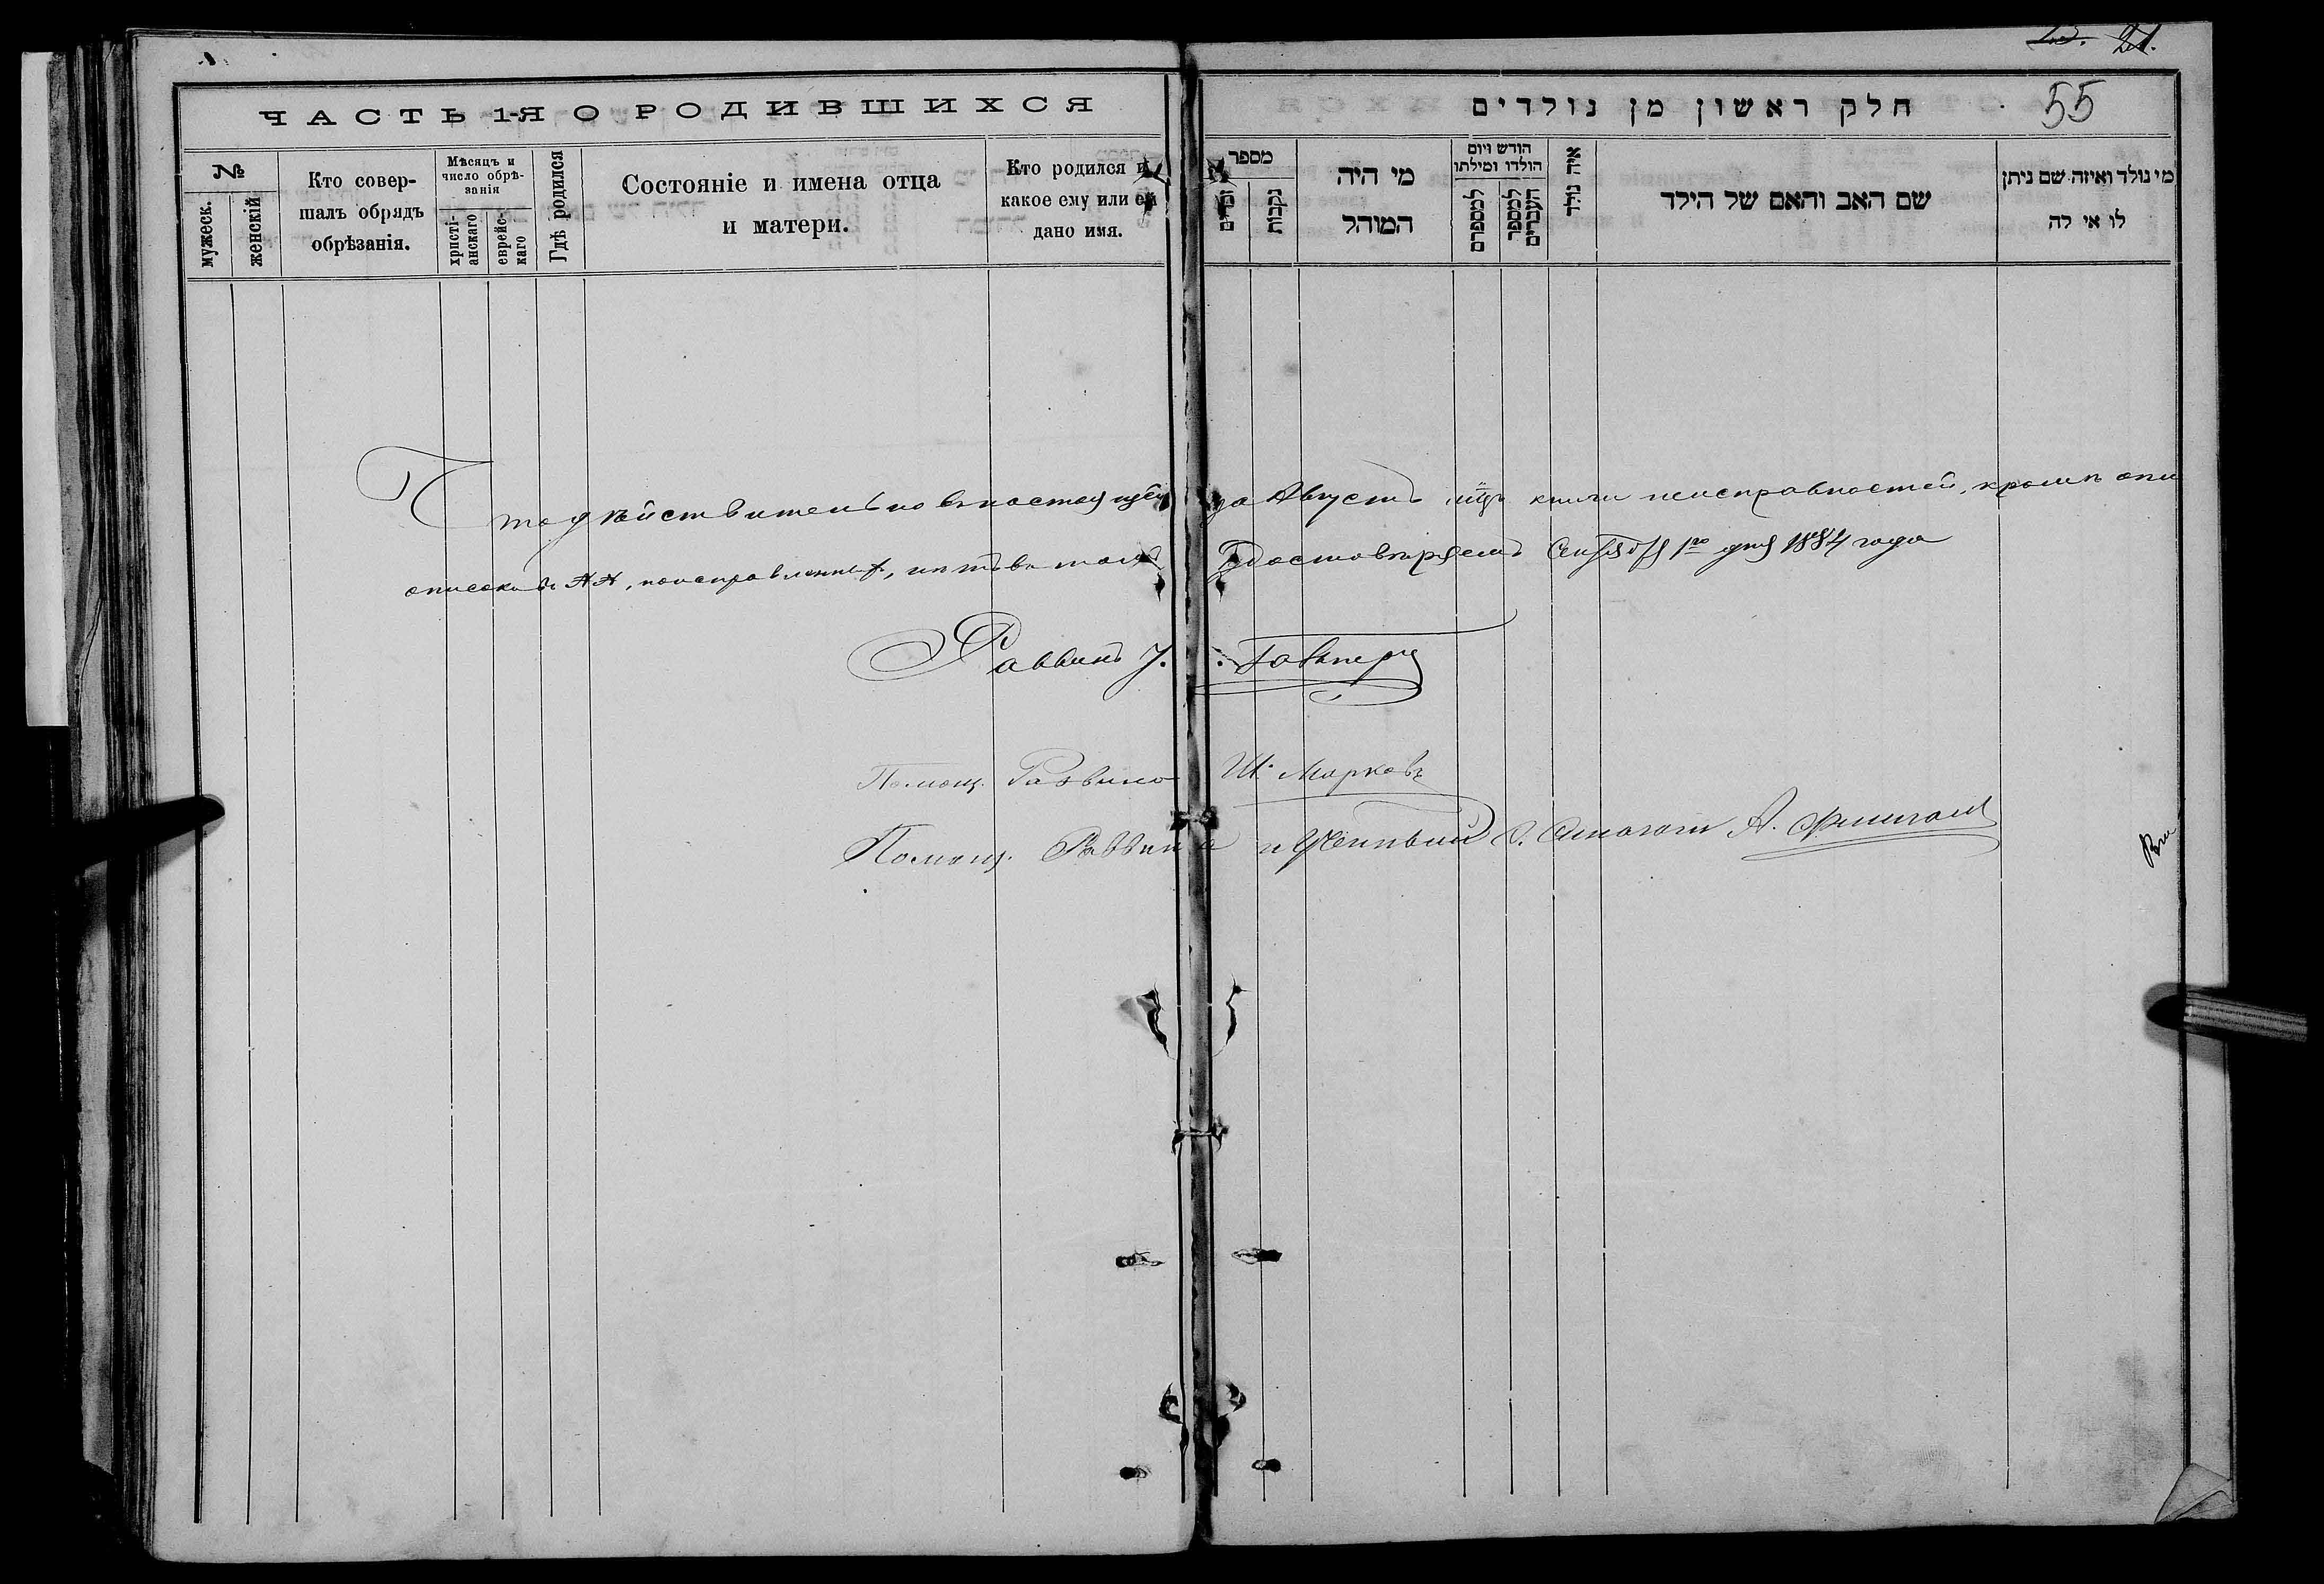 23. 21.
55
ЧАСТЬ 1-Я О РОДИВШИХСЯ
№
мужеск.
женскій
Кто совер-
шалъ обрядъ
обрѣзанія.
Мѣсяцъ и
число обрѣ-
занія
христі-
анскаго
еврейс-
каго
Гдѣ родился
Состояніе и имена отца
и матери.
Кто родился и
какое ему или ей
дано имя.
חלק ראשון מן נולדים
מספר
נקבות
מי היה
המוהל
הודש ויום
הולדו ומילתו
למספרם
למספר
העברים
איה נולד
שם האב והאם של הילד
מי נולד ואיזה שם ניתן
לו אי לה
Что дѣйствительно въ настоящей за Августъ мцъ книги неисправностей, кромѣ опи
описокъ , неисправленныхъ, нѣтъ въ томъ Удостовѣряемъ Сентября 1го дня 1884 года
Раввинъ
Помощ. Раввина Ш. Марковъ
Помощ. Раввина и Ученный